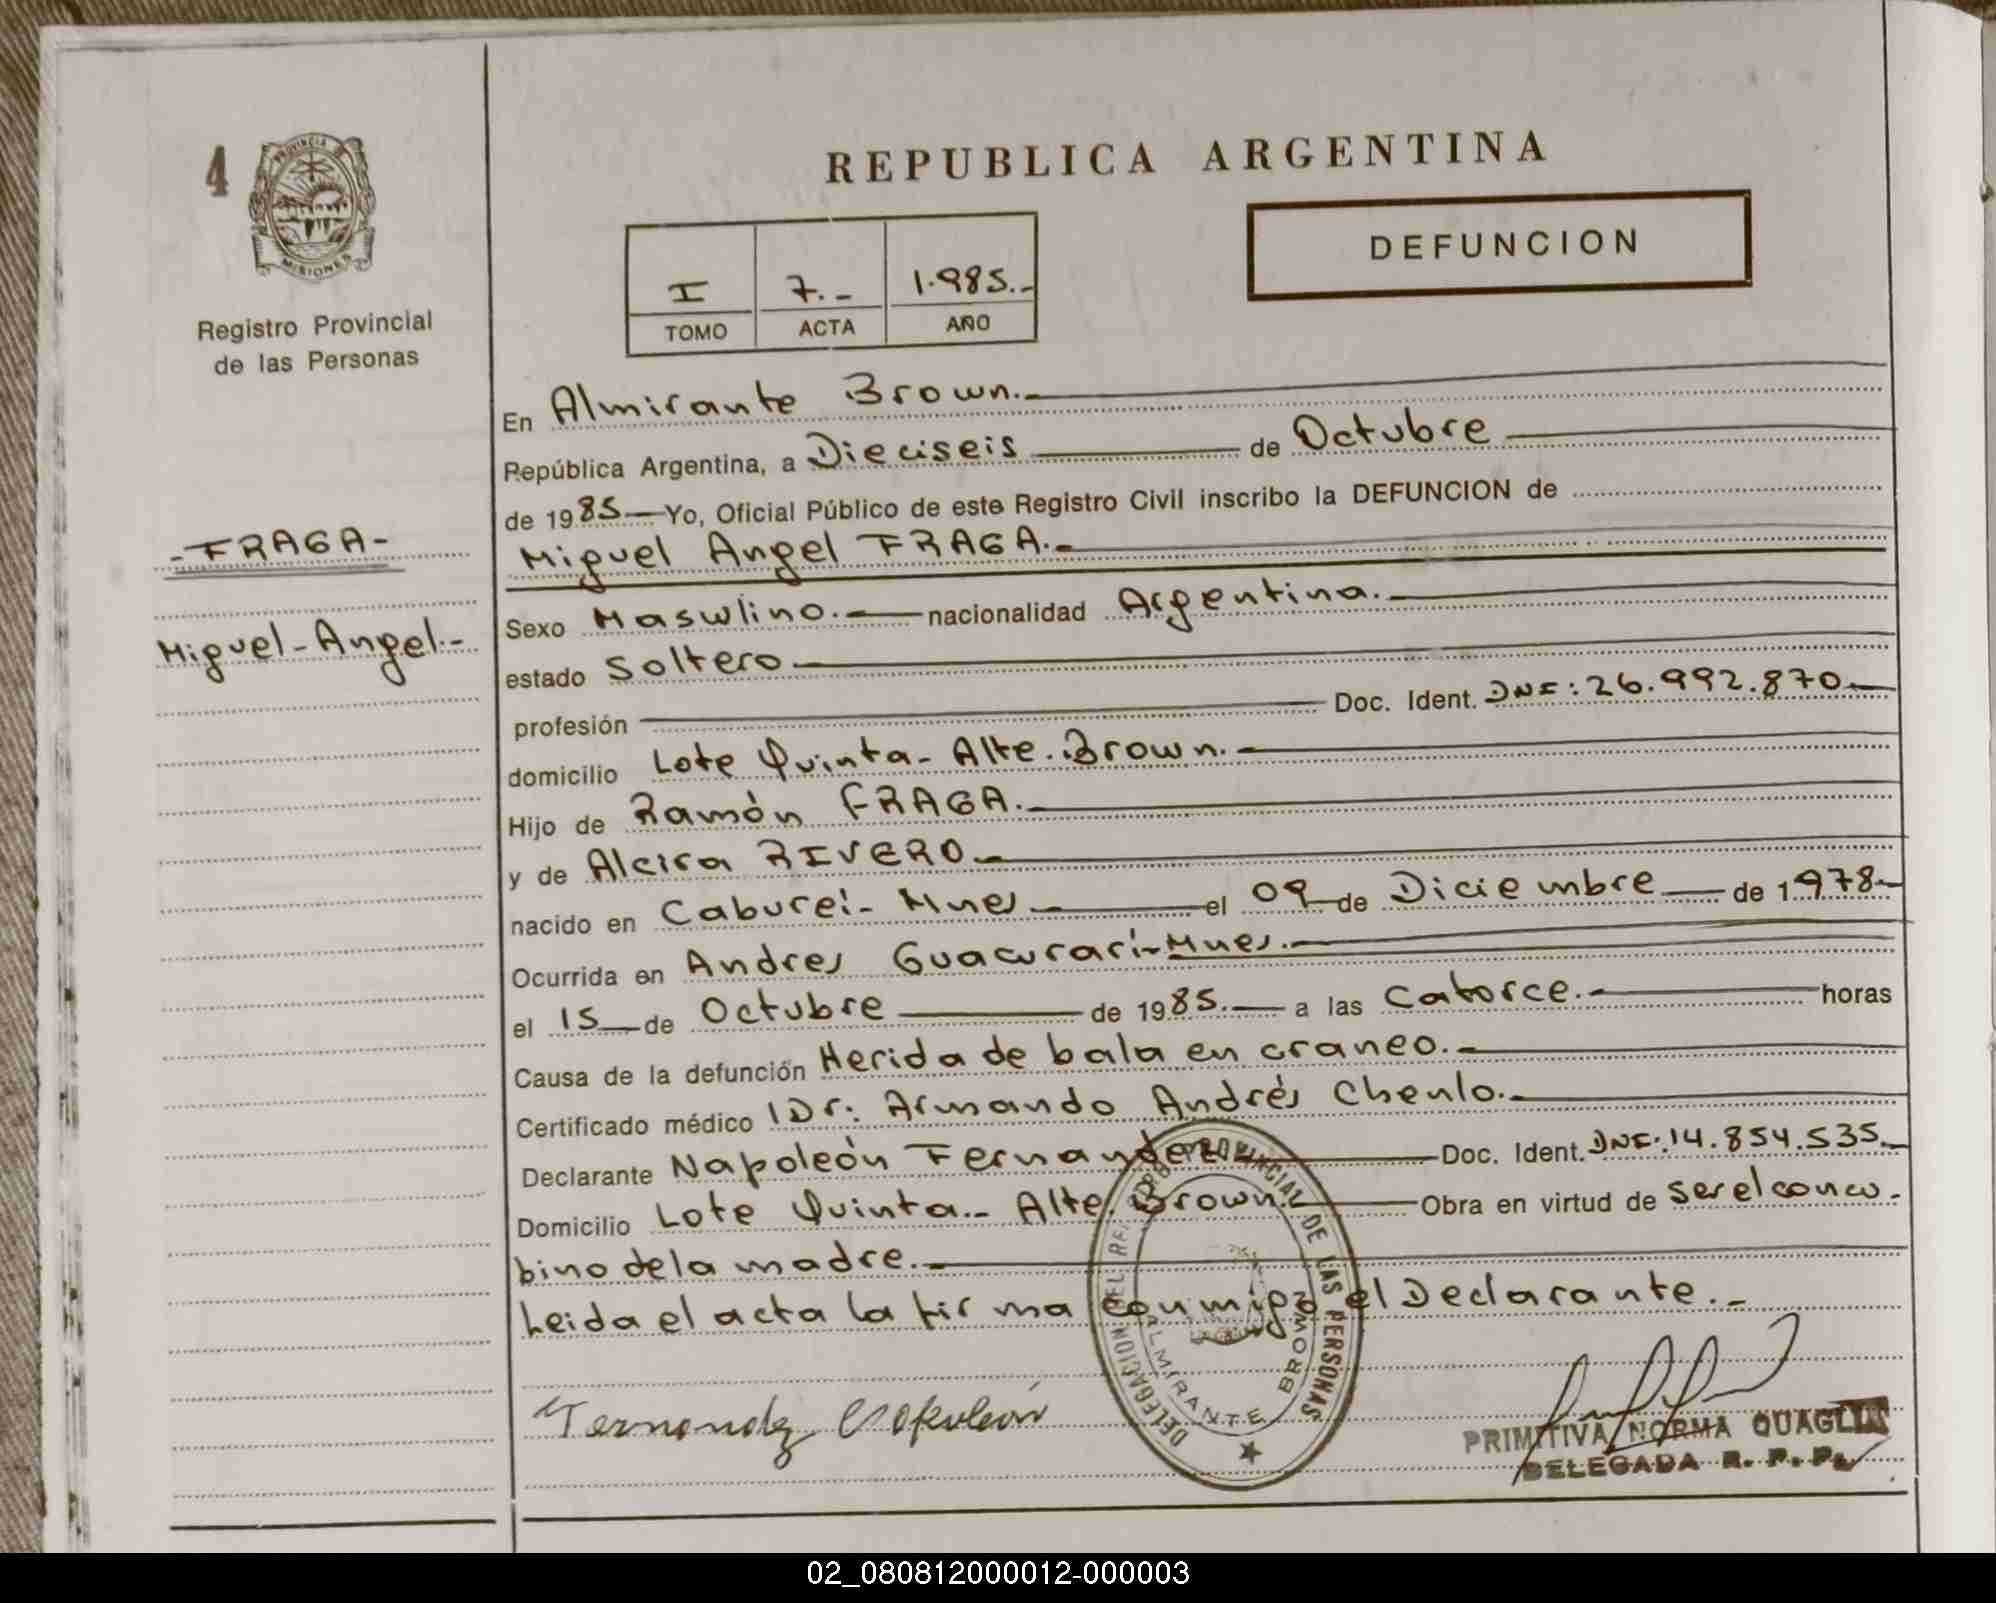 4
PROVINCIA
MISIONES
Registro Provincial
de las Personas
REPUBLICA ARGENTINA
DEFUNCION
I 7.- 1.985.-
TOMO ACTA AÑO
En Almirante Brown.-
República Argentina, a Dieciseis de Octubre
de 1985 Yo, Oficial Público de este Registro Civil inscribo la DEFUNCION de
-FRAGA-
Miguel Angel FRAGA.-
Miguel-Angel.-
Sexo Masculino.- nacionalidad Argentina.-
estado Soltero
profesión Doc. Ident. DNI: 26.992.870
domicilio Lote Quinta- Alte. Brown.-
Hijo de Ramón FRAGA.-
y de Alcira RIVERO-
nacido en Caburei- Mnes el 09 de Diciembre de 1978-
Ocurrida en Andres Guacurari-Mnes.-
el 15 de Octubre de 1985.- a las Catorce.- horas
Causa de la defunción Herida de bala en craneo.-
Certificado médico Dr: Armando Andrés Chenlo.-
Declarante Napoleón Fernandez Doc. Ident. DNI: 14.854.535.-
Domicilio Lote Quinta.- Alte. Brown.- Obra en virtud de ser el concu-
bino de la madre.-
Leida el acta la firma conmigo el Declarante.-
DELEGACION DEL PROVINCIAL DE LAS PERSONAS
ALMIRANTE BROWN
Fernandez Napoleón
PRIMITIVA NORMA QUAGLIA
DELEGADA R. P. P.
02_080812000012-000003